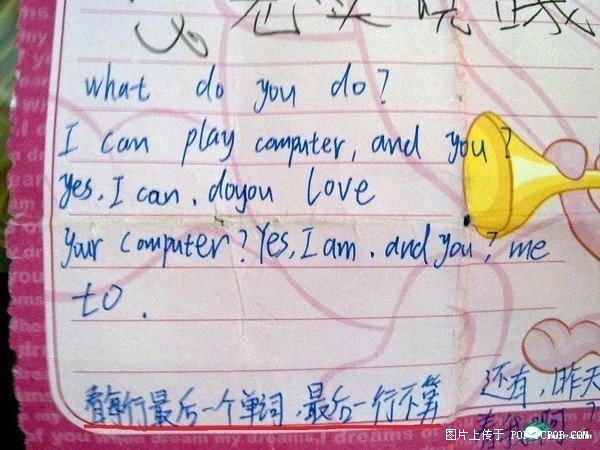 what do you do?
I can play computer, and you?
yes. I can. doyou love
your computer? Yes, I am. and you? me
to.
看每行最后一个单词，最后一行不算
还有，昨天
看我啊
图片上传于 POPITPOP.COM